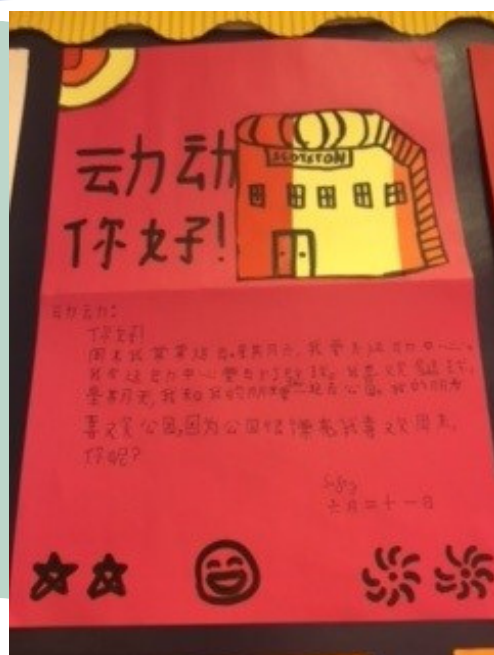 动动
你好!
SCOTSTON
动动:
你好!
周末我常常运动。星期六,我要去运动中心。
我在运动中心要
我喜欢
星期天,我和我的朋友一起去公园。我的朋友
喜欢公园,因为公园很漂亮我喜欢周末,
你呢?
六月二十一日